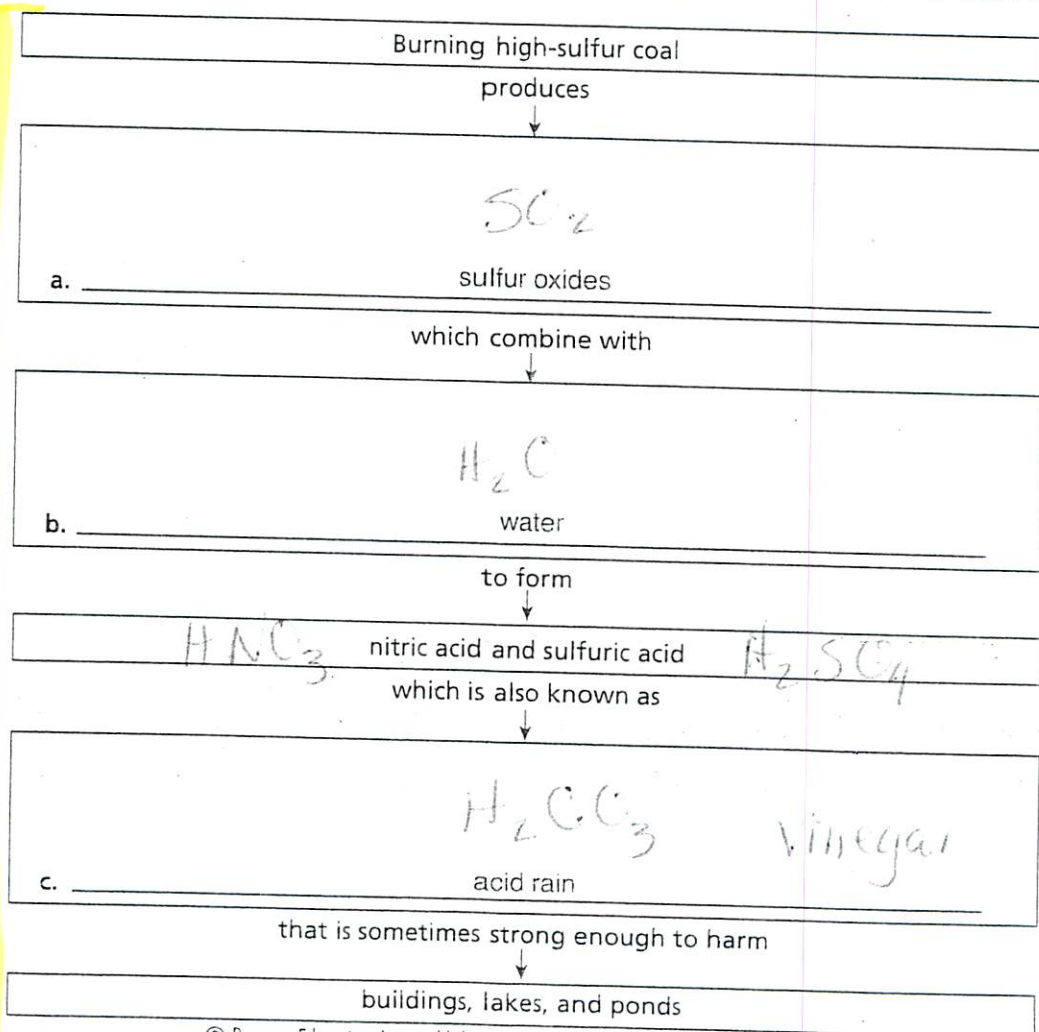 Burning high-sulfur coal
produces
SO2
a. sulfur oxides
which combine with
H2O
b. water
to form
HNO3 nitric acid and sulfuric acid H2SO4
which is also known as
H2CO3 vinegar
c. acid rain
that is sometimes strong enough to harm
buildings, lakes, and ponds